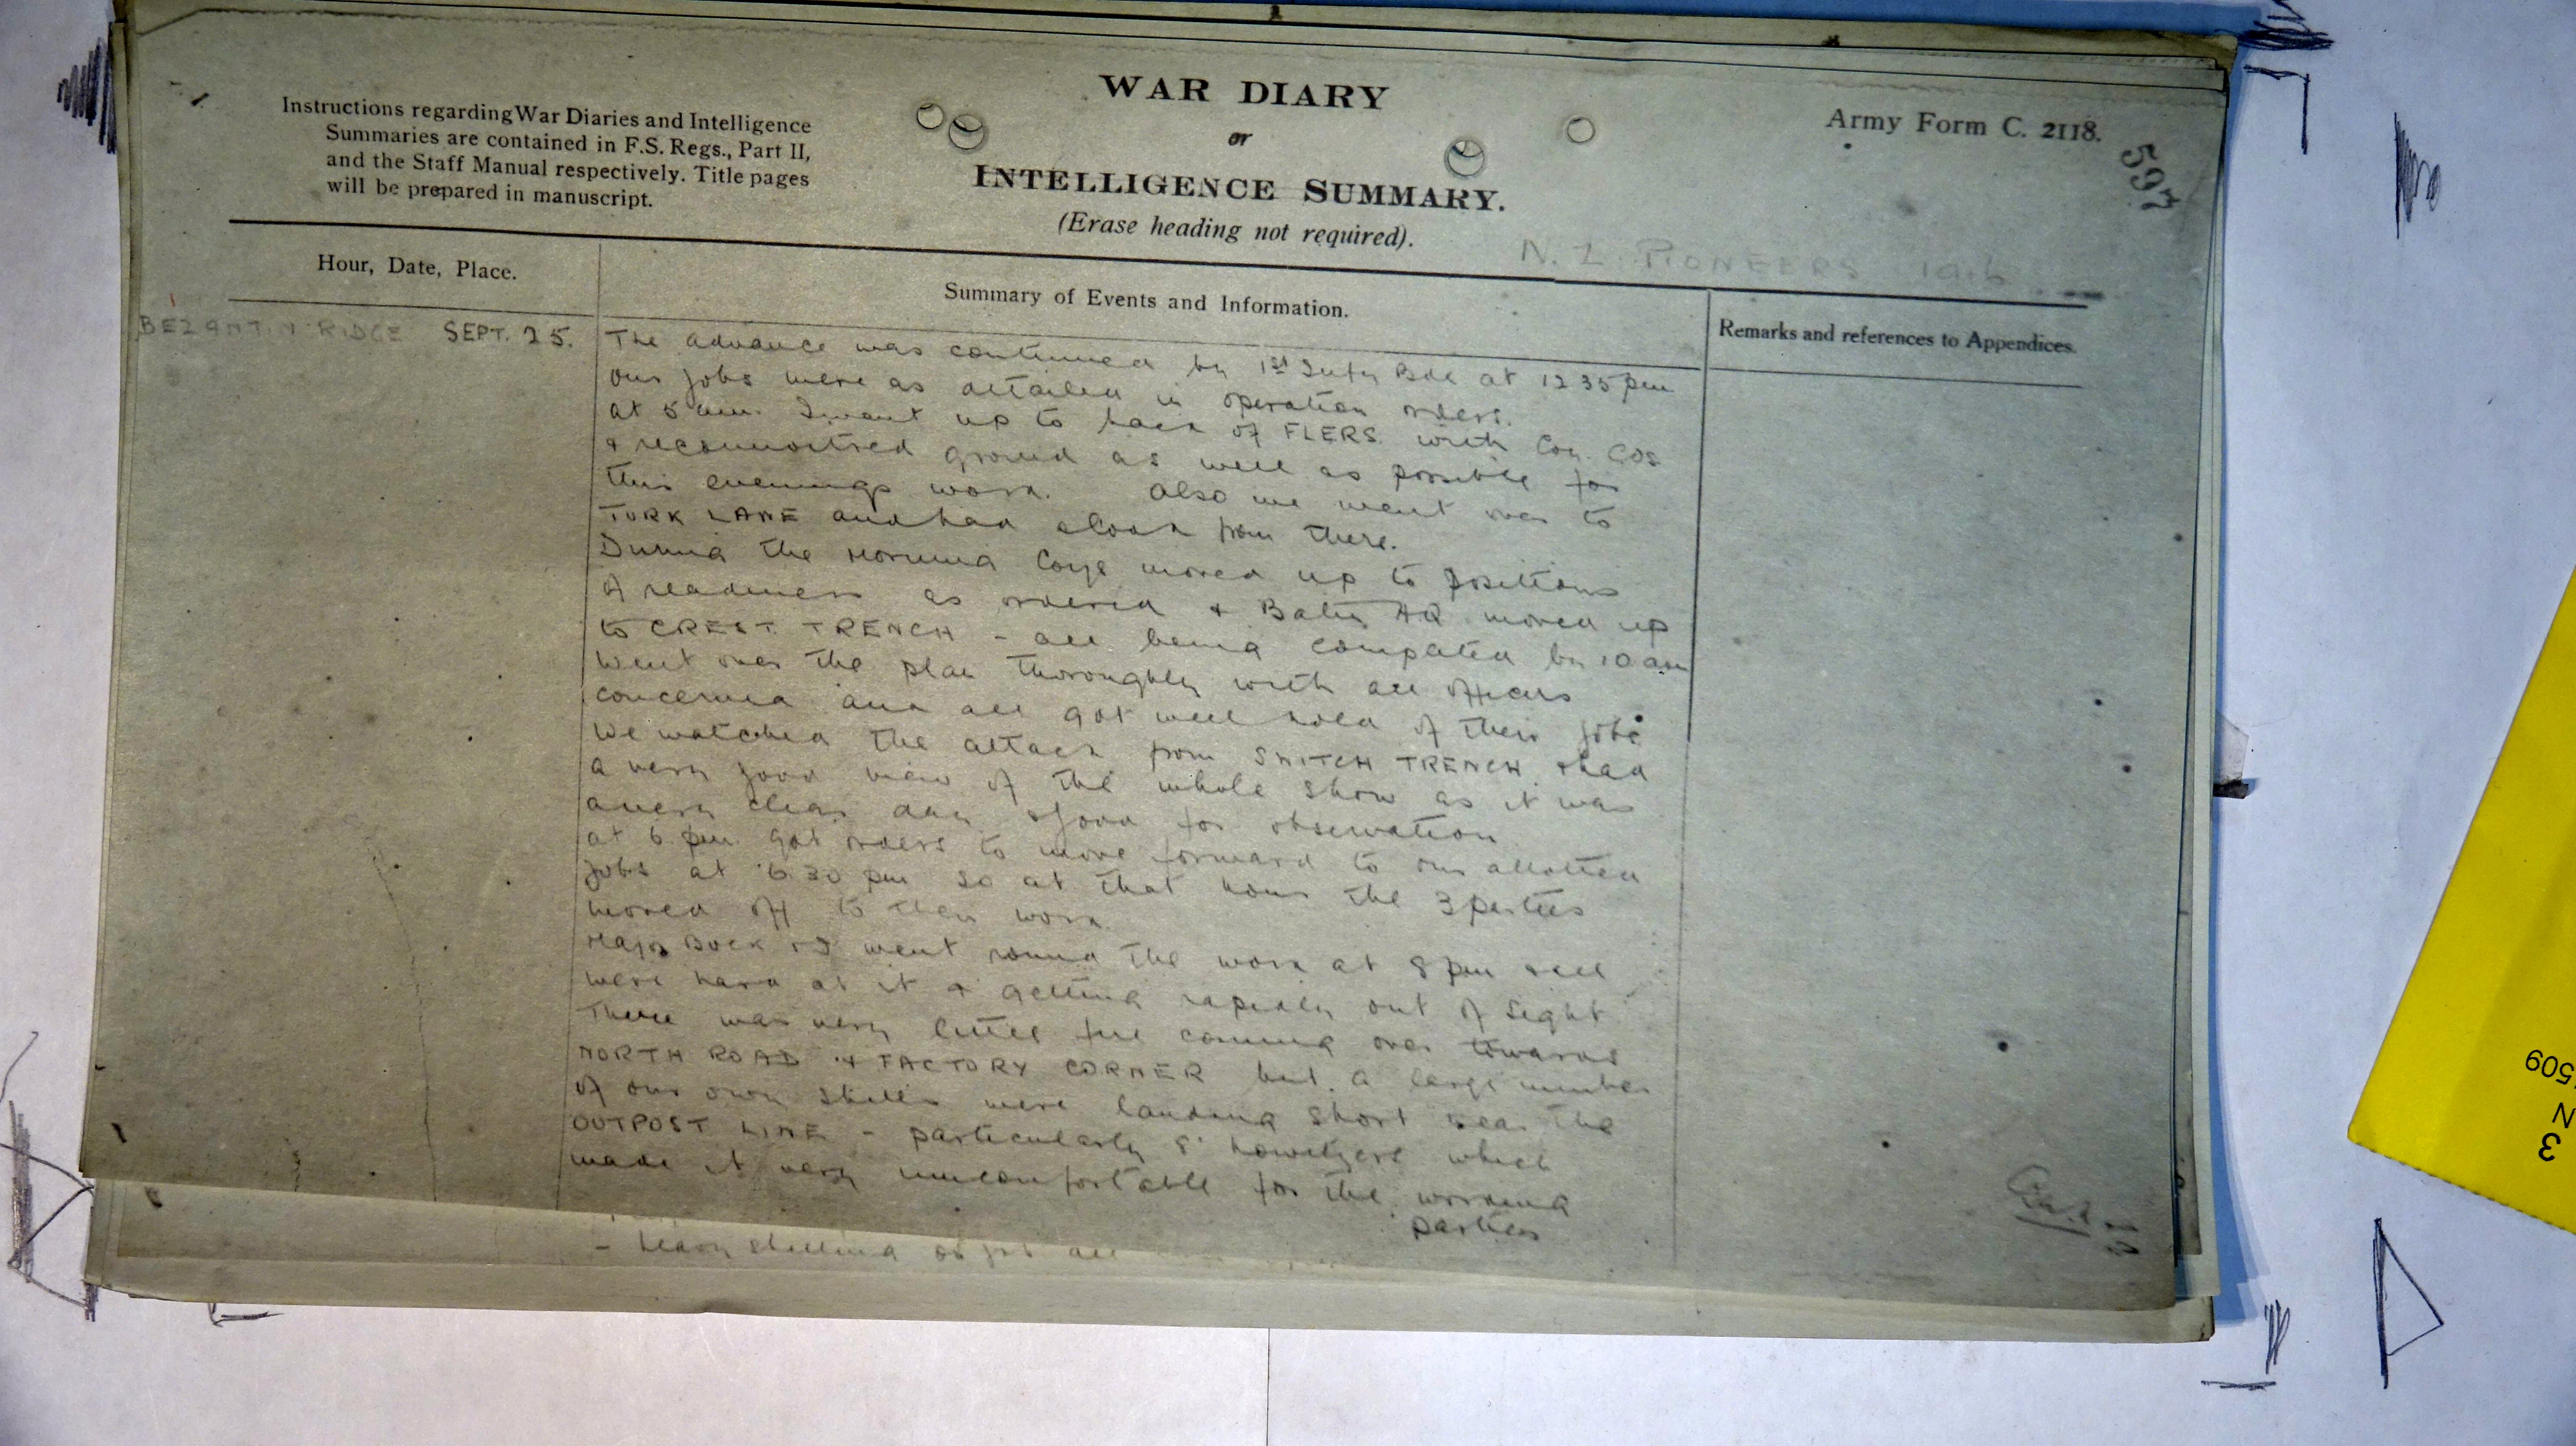 Instructions regarding War Diaries and Intelligence
Summaries are contained in F.S. Regs., Part II,
and the Staff Manual respectively. Title pages
will be prepared in manuscript.
WAR DIARY
or
INTELLIGENCE SUMMARY.
(Erase heading not required).
Army Form C. 2118.
597
N. Z. PIONEERS
Hour, Date, Place.
Summary of Events and Information.
Remarks and references to Appendices.
BEZANTIN RIDGE SEPT. 25.
The advance was continued by 1st Infy Bde at 12 35 pm
our jobs were as detailed in operation orders.
at 5 am. I went up to back of FLERS. with Coy. COs
& reconnoitred ground as well as possible for
this evenings work. Also we went over to
TURK LANE and had a look from there.
During the morning Coys moved up to positions
of readiness as ordered & Batn HQ moved up
to CREST TRENCH - all being completed by 10 am
Went over the plan thoroughly with all officers
concerned and all got well hold of their jobs
We watched the attack from SWITCH TRENCH & had
a very good view of the whole show as it was
a very clear day & good for observation
at 6 pm. got orders to move forward to our allotted
jobs at 6 30 pm so at that hour the 3 parties
moved off to their work.
Major Buck & I went round the work at 8 pm & all
were hard at it & getting rapidly out of sight
There was very little fire coming over towards
NORTH ROAD & FACTORY CORNER but a large number
of our own shells were landing short near the
OUTPOST LINE - particularly 8" howitzers which
made it very uncomfortable for the working
parties
- heavy shelling
509
N
3